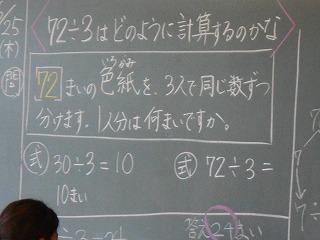 25
(木)
問
72÷3はどのように計算するのかな
いろがみ
72まいの色紙を、3人で同じ数ずつ
分けます。1人分は何まいですか。
式 30÷3=10
10まい
式 72÷3=
答え24まい
7
7÷